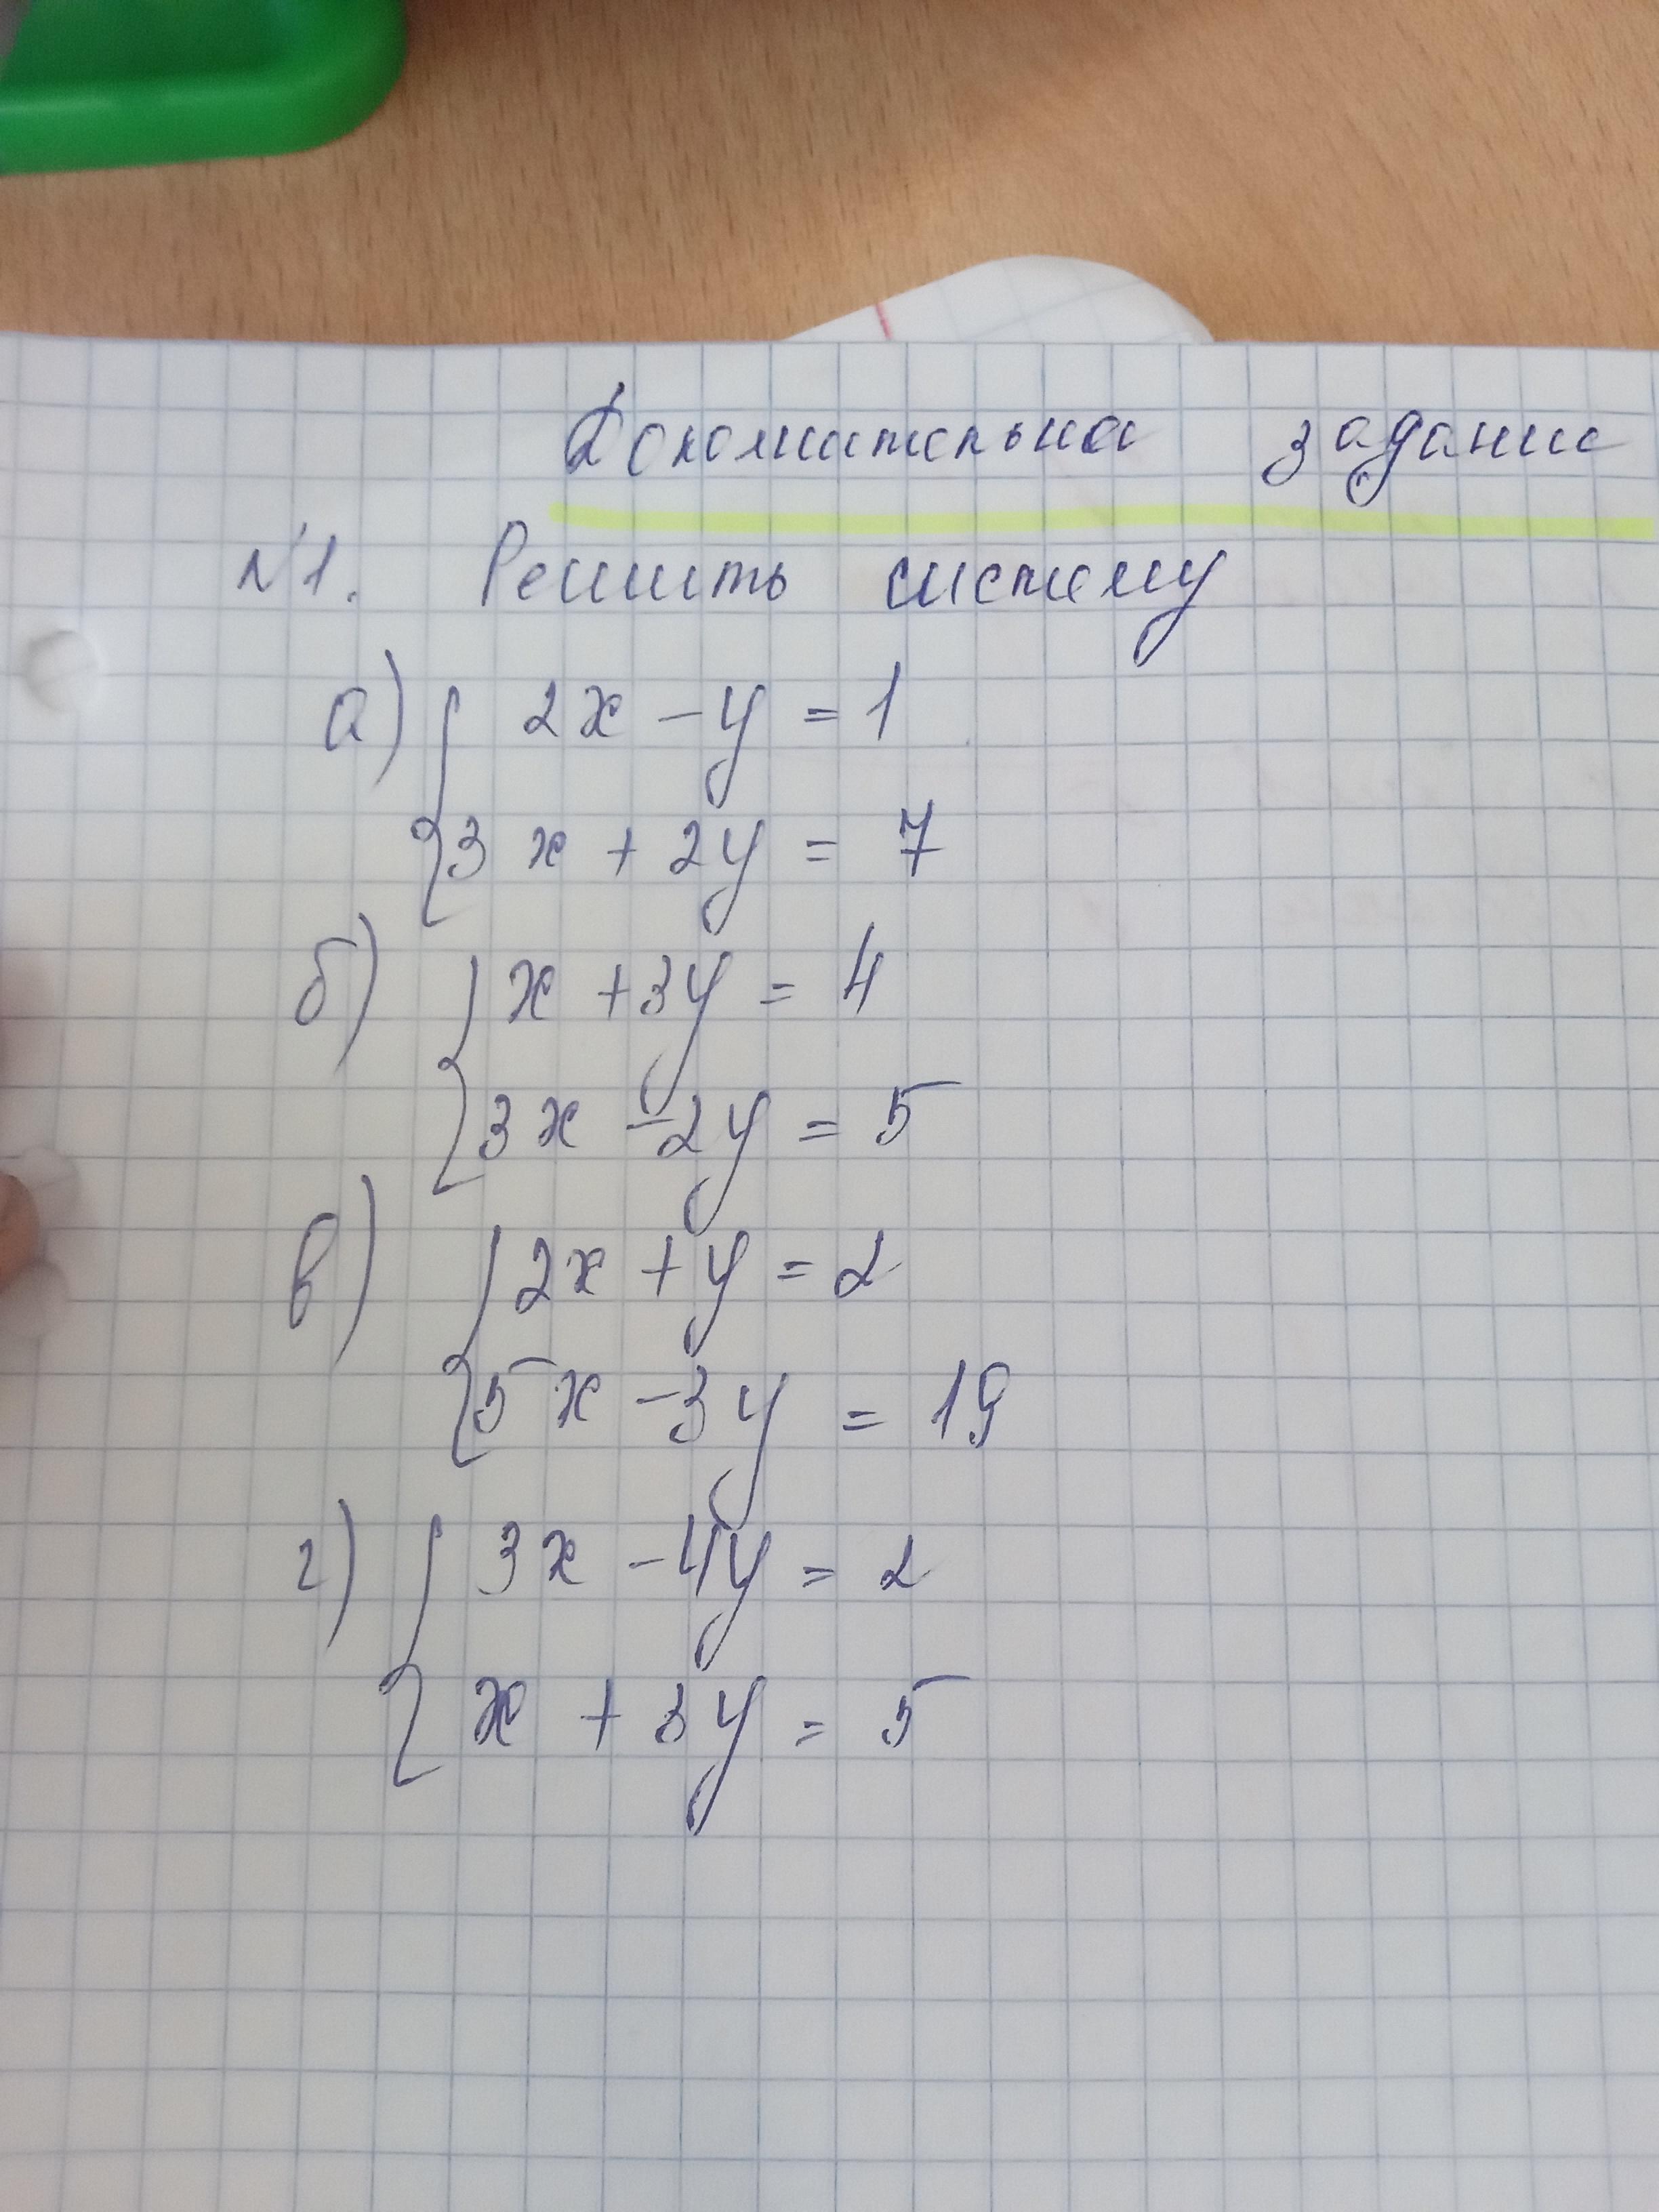 Дополнительное задание
№1. Решить систему
а) { 2x - y = 1
3x + 2y = 7
б) { x + 3y = 4
3x - 2y = 5
в) { 2x + y = 2
5x - 3y = 19
г) { 3x - 4y = 2
x + 3y = 5